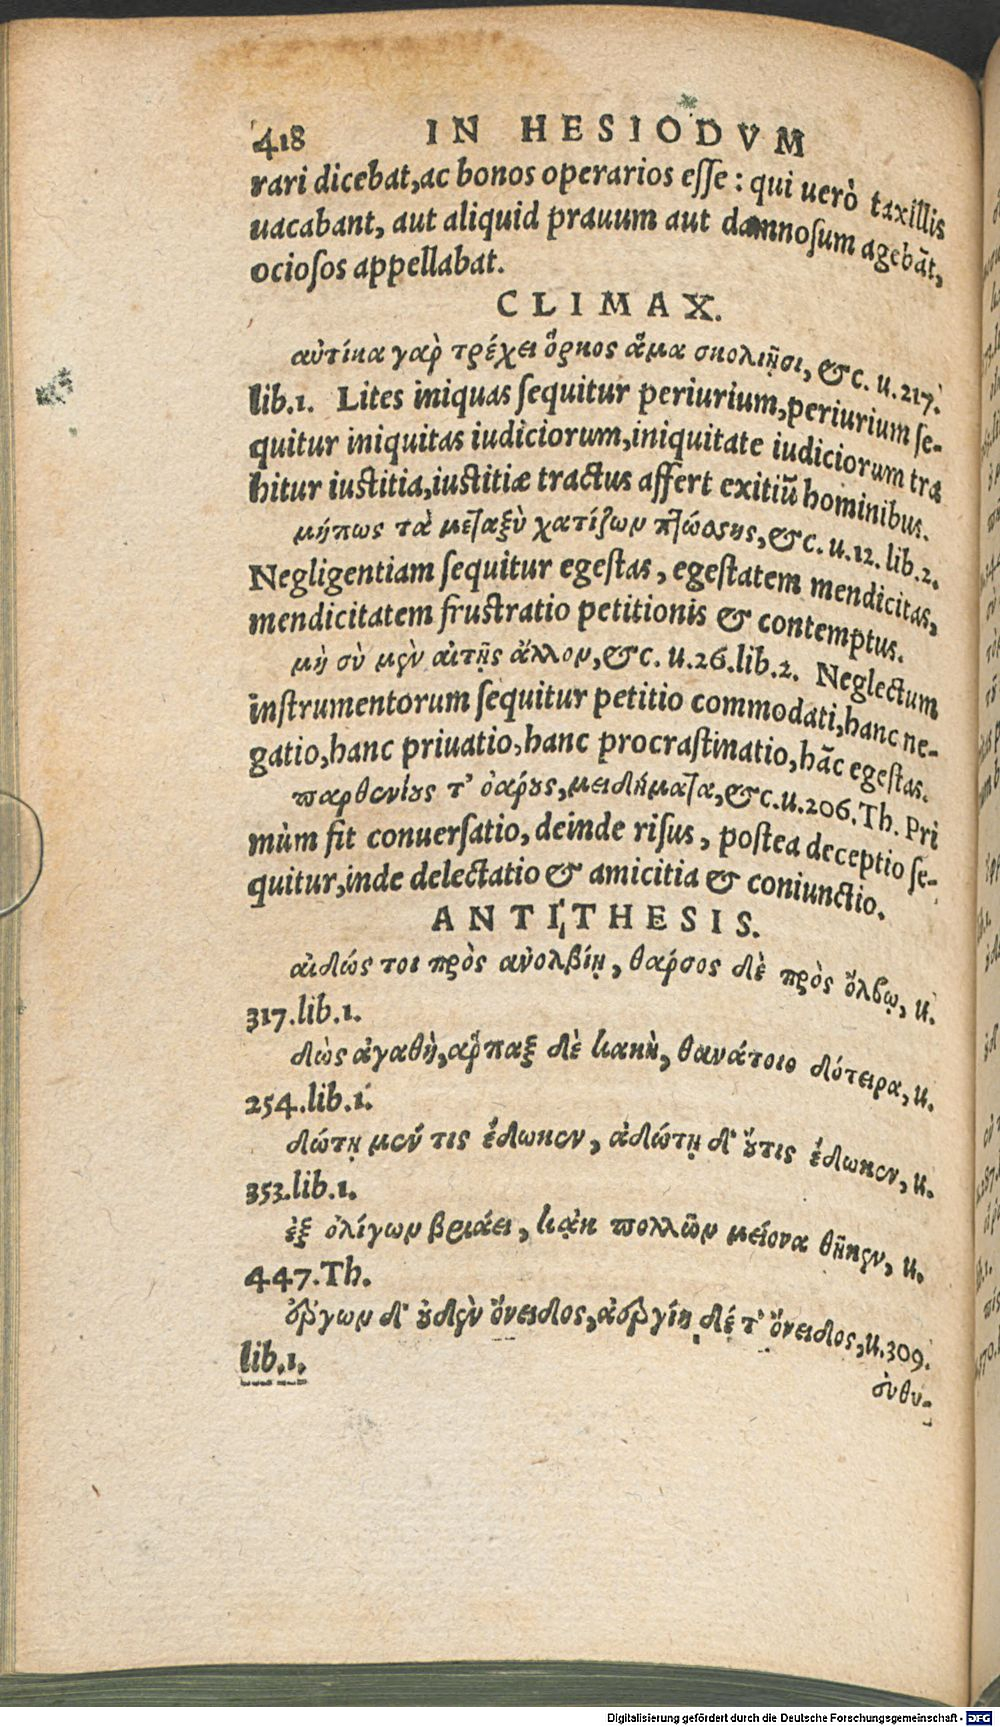 418 IN HESIODVM
rari dicebat,ac bonos operarios esse: qui uerò taxillis
uacabant, aut aliquid prauum aut damnosum agebāt,
ociosos appellabat.
CLIMAX.
αὐτίκα γὰρ τρέχει ὅρκος ἅμα σκολιῇσι, &c. u.217.
lib.1. Lites iniquas sequitur periurium,periurium se-
quitur iniquitas iudiciorum,iniquitate iudiciorum tra
hitur iustitia,iustitiæ tractus affert exitiũ hominibus.
μήπως τὰ μεταξὺ χατίζων πτώσσῃς, &c. u.12. lib.2.
Negligentiam sequitur egestas, egestatem mendicitas,
mendicitatem frustratio petitionis & contemptus.
μὴ σὺ μὲν αἰτῇς ἄλλον, &c. u.26.lib.2. Neglectum
instrumentorum sequitur petitio commodati,hanc ne-
gatio,hanc priuatio,hanc procrastinatio,hāc egestas.
παρθενίους τ' ὀάρους,μειδήματα,&c.u.206.Th. Pri
mùm fit conuersatio, deinde risus, postea deceptio se-
quitur,inde delectatio & amicitia & coniunctio.
ANTITHESIS.
αἰδώς τοι πρὸς ἀνολβίῃ, θάρσος δὲ πρὸς ὄλβῳ, u.
317.lib.1.
δὼς ἀγαθὴ,ἅρπαξ δὲ κακὴ, θανάτοιο δότειρα, u.
254.lib.1.
δώτῃ μέν τις ἔδωκεν, ἀδώτῃ δ' οὔτις ἔδωκεν, u.
353.lib.1.
ἐξ ὀλίγων βριάει, κἀκ πολλῶν μείονα θῆκεν, u.
447.Th.
ἔργον δ' οὐδὲν ὄνειδος,ἀεργίη δέ τ' ὄνειδος,u.309.
lib.1.
ἐνθυ-
Digitalisierung gefördert durch die Deutsche Forschungsgemeinschaft - DFG